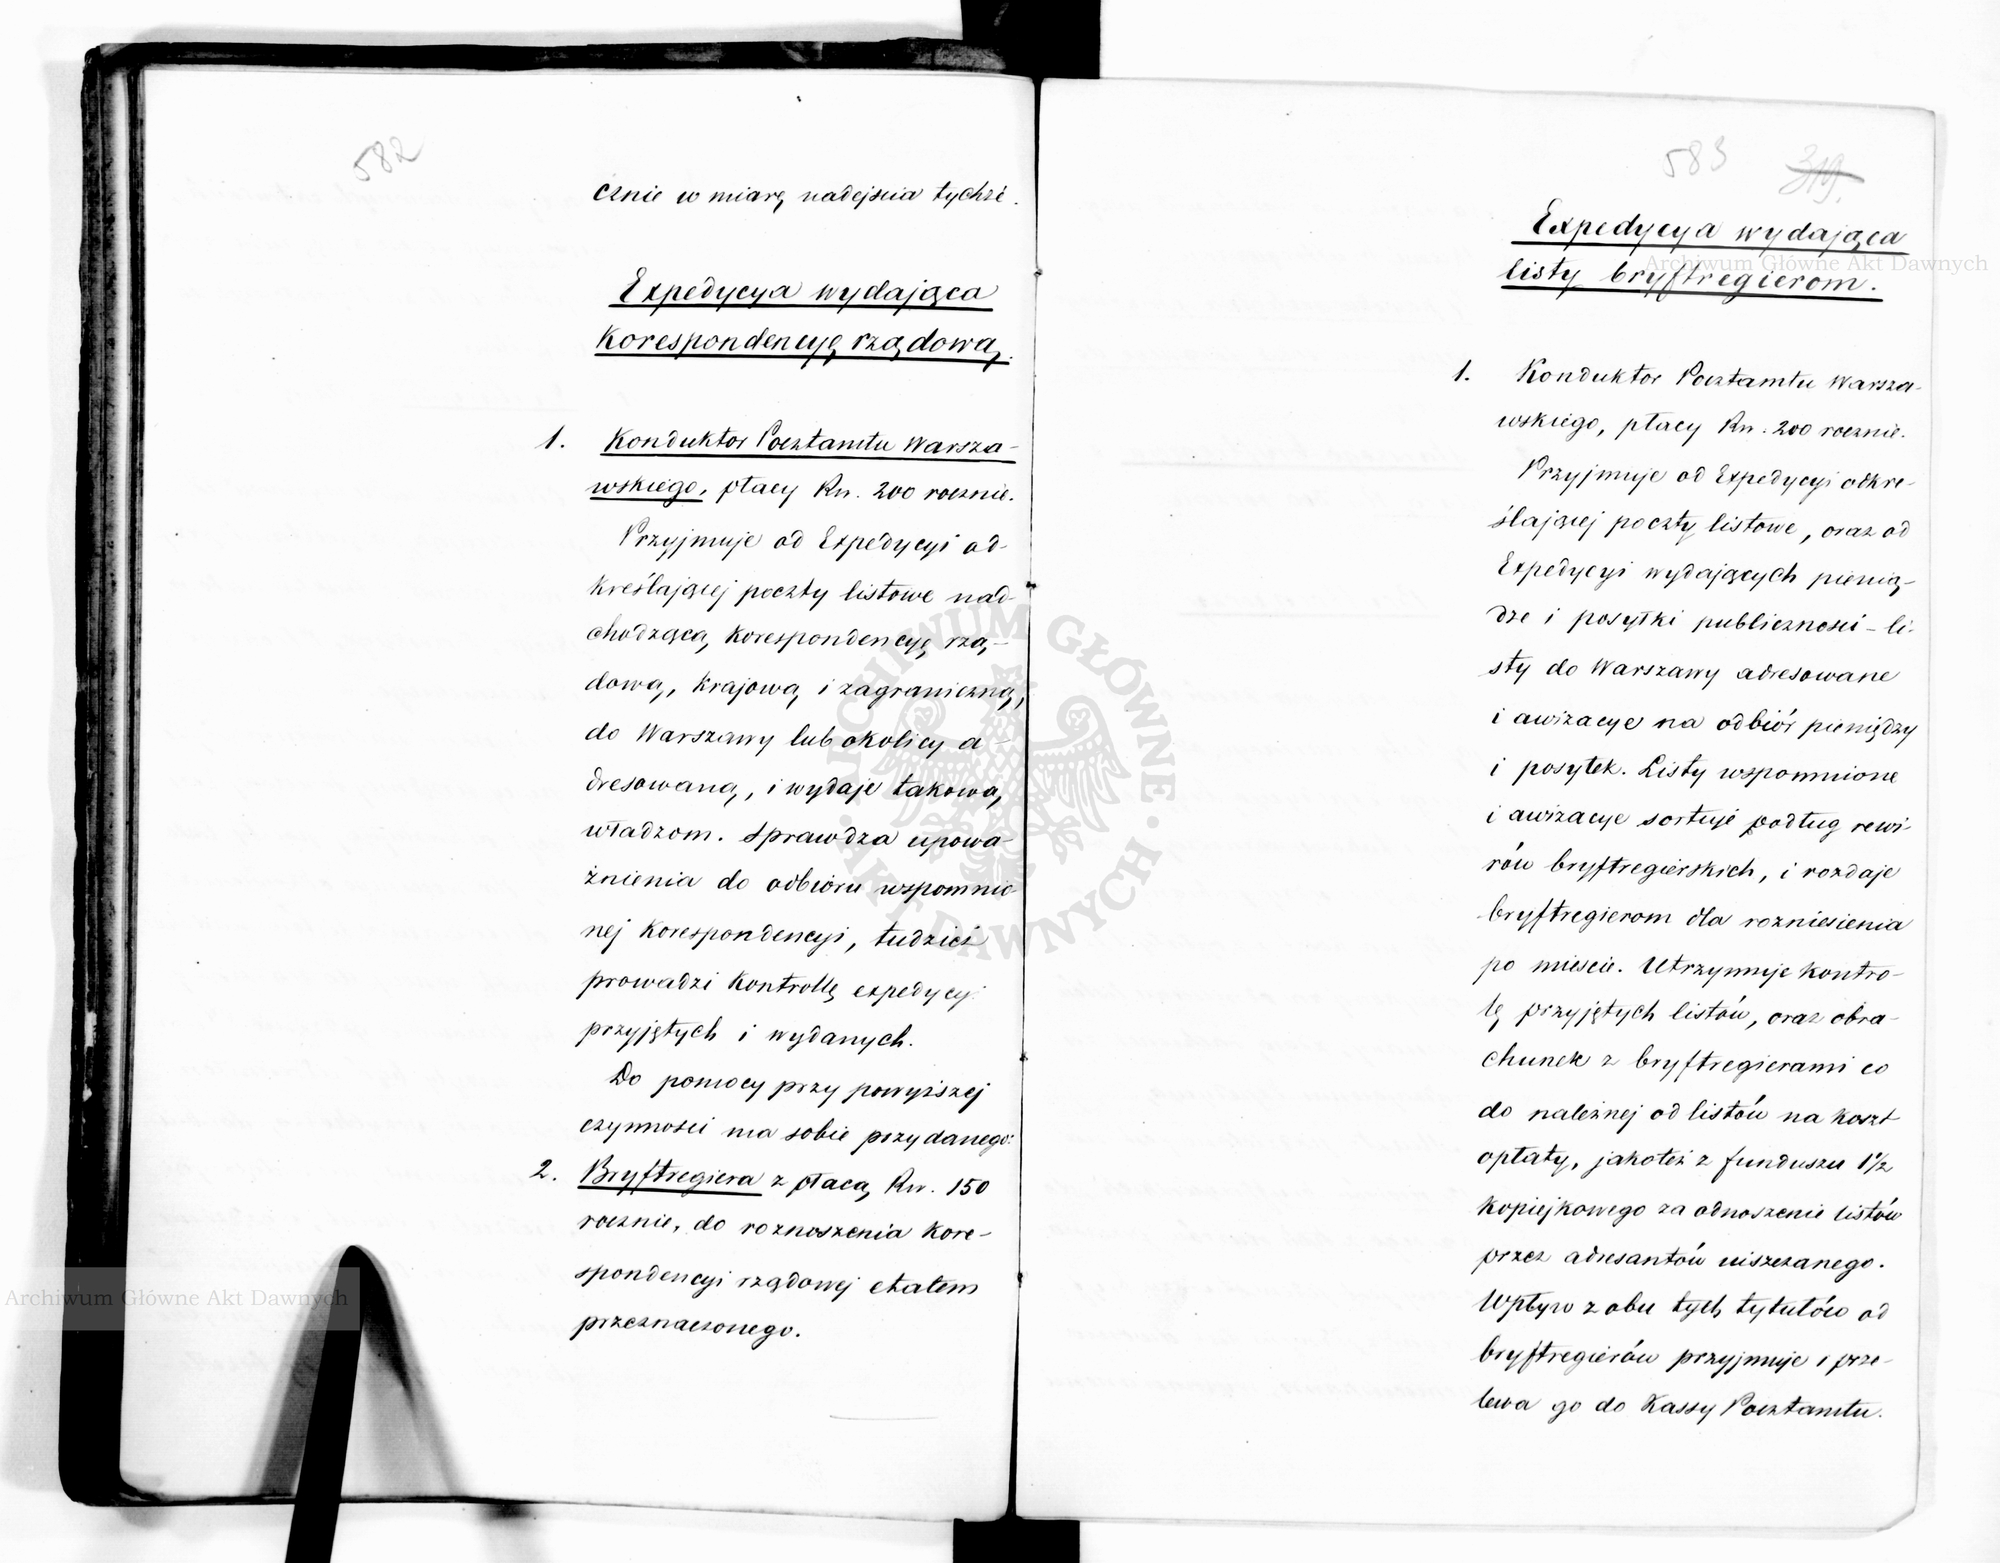 582
cznie w miarę nadejścia tychże.
Expedycya wydająca
Korespondencyę rządową.
1. Konduktor Pocztamtu Warsza-
wskiego, płacy Rn. 200 rocznie.
Przyjmuje od Expedycyi od-
kreślającej poczty listowe nad-
chodzącą Korespondencyę rzą-
dową, Krajową i zagraniczną,
do Warszawy lub okolicy a-
dresowaną, i wydaje takową
władzom. Sprawdza upowa-
żnienia do odbioru wspomnio
nej Korespondencyi, tudzież
prowadzi Kontrollę expedycyi
przyjętych i wydanych.
Do pomocy przy powyższej
czynności ma sobie przydanego:
2. Bryftregiera z płacą Rn. 150
rocznie, do roznoszenia Kore-
spondencyi rządowej etatem
przeznaczonego.
583 319.
Expedycya wydająca
listy bryftregierom.
1. Konduktor Pocztamtu Warsza-
wskiego, płacy Rn. 200 rocznie.
Przyjmuje od Expedycyi odkre-
ślającej poczty listowe, oraz od
Expedycyi wydających pienią-
dze i posyłki publiczności - li-
sty do Warszawy adresowane
i awizacye na odbiór pieniędzy
i posyłek. Listy wspomnione
i awizacye sortuje podług rewi-
rów bryftregierskich, i rozdaje
bryftregierom dla rozniesienia
po mieście. Utrzymuje Kontro-
lę przyjętych listów, oraz obra-
chunek z bryftregierami co
do należnej od listów na koszt
opłaty, jakoteż z funduszu 1½
Kopiejkowego za odnoszenie listów
przez adresantów uiszczanego.
Wpływ z obu tych tytułów od
bryftregierów przyjmuje i prze-
lewa go do Kassy Pocztamtu.
Archiwum Główne Akt Dawnych
Archiwum Główne Akt Dawnych
ARCHIWUM GŁÓWNE · AKT DAWNYCH ·